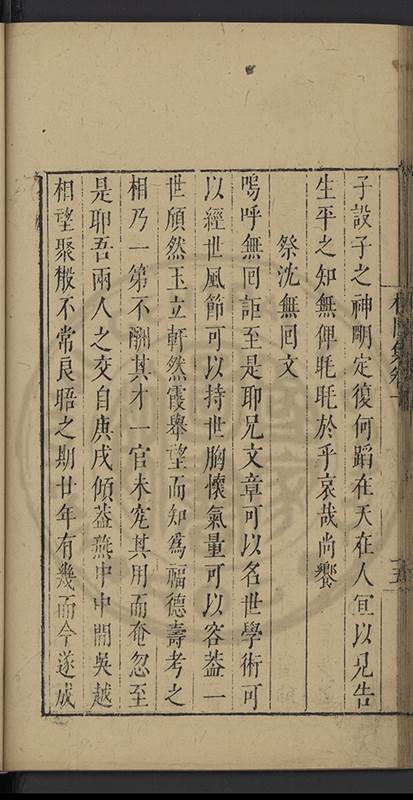 子設子之神明定復何蹈在天在人宜以兄告
生平之知無俾毦毦於乎哀哉尚饗
祭沈無回文
嗚呼無回詎至是耶兄文章可以名世學術可
以經世風節可以持世胸懷氣量可以容蓋一
世頎然玉立軒然霞舉望而知為福德壽考之
相乃一第不酬其才一官未究其用而奄忽至
是耶吾兩人之交自庚戌傾蓋燕中中間吳越
相望聚散不常良晤之期廿年有幾而今遂成